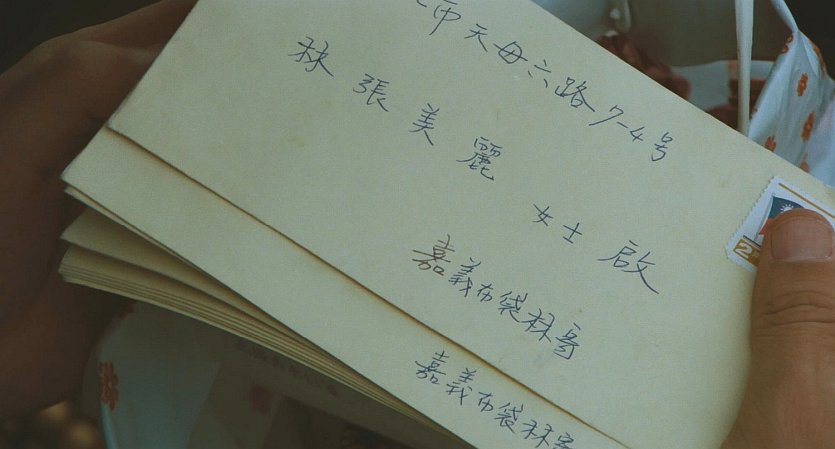 市天母六路7-4号
林張美麗 女士 啟
嘉義布袋林寄
嘉義布袋林寄